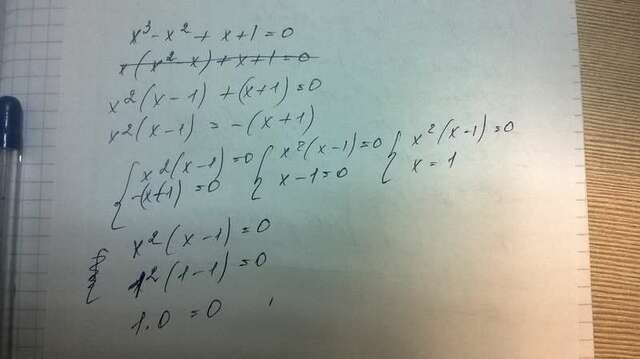 x³ - x² + x + 1 = 0
x(x² - x) + x + 1 = 0
x²(x - 1) + (x + 1) = 0
x²(x - 1) = -(x + 1)
{ x²(x - 1) = 0 { x²(x - 1) = 0 { x²(x - 1) = 0
-(x + 1) = 0 x - 1 = 0 x = 1
x²(x - 1) = 0
1²(1 - 1) = 0
1 · 0 = 0